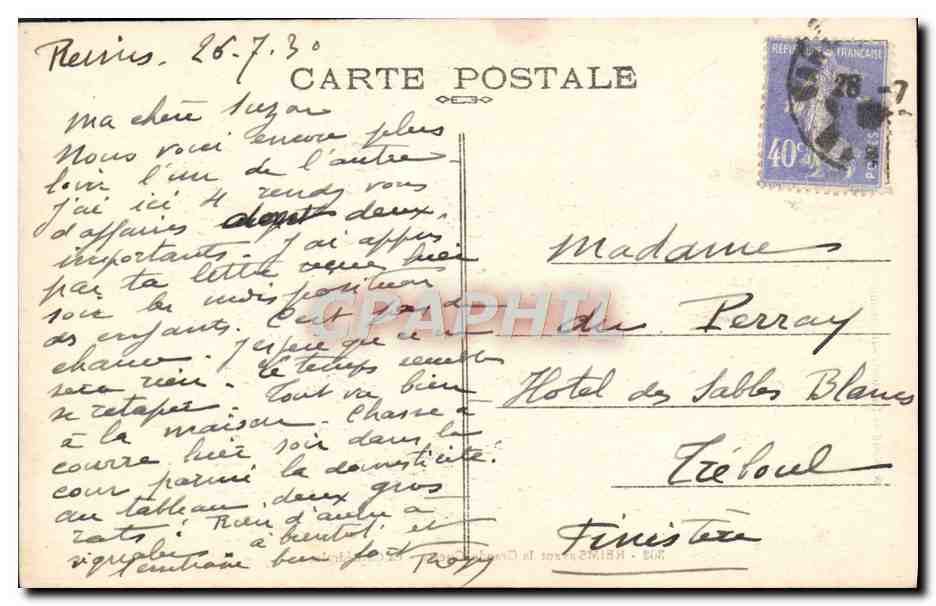 Reims. 26.7.30
CARTE POSTALE
RÉPUBLIQUE FRANÇAISE
40c
POSTES
26 -7
Ma chère Suzon
Nous voici encore plus
loin l'un de l'autre
J'ai ici 4 rendez vous
d'affaires dont deux
importants. J'ai appris
par ta lettre reçue hier
soir les indispositions
des enfants. C'est pas de
chance. J'espère que ce ne
sera rien. Le temps semble
se retaper. Tout va bien
à la maison. Chasse à
courre hier soir dans la
cour parmi la domesticité.
au tableau deux gros
rats! Rien d'autre à
signaler. à bientôt et
bien fort
Madame
du Perray
Hotel des Sables Blancs
Tréboul
Finistère
CPAPHIL